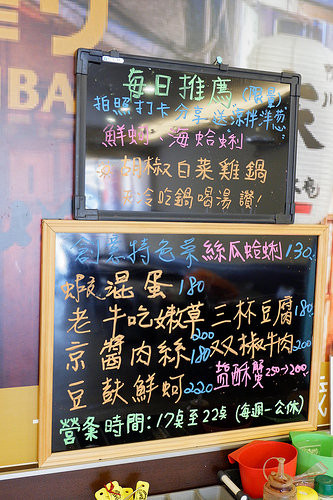 BA
每日推薦 (限量)
拍照打卡分享送涼拌洋蔥
鮮蚵 海蛤蜊
胡椒白菜雞鍋
冷吃鍋喝湯讚!
創意特色菜 絲瓜蛤蜊130
蝦混蛋180
老牛吃嫩草200 三杯豆腐180
京醬肉絲180 双椒牛肉200
豆鼓鮮蚵220 鹽酥蟹250→200
營業時間:17点至22点(每週一公休)